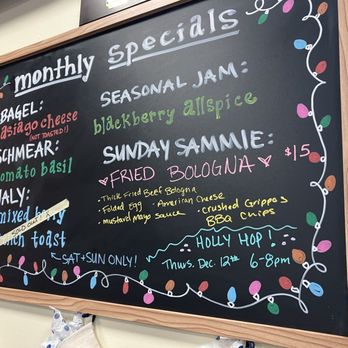 monthly specials
BAGEL:
asiago cheese
(NOT TOASTED!)
SCHMEAR:
tomato basil
SOLD OUT
toast
SAT + SUN ONLY!
SEASONAL JAM:
blackberry allspice
SUNDAY SAMMIE:
FRIED BOLOGNA $15
• Thick Fried Beef Bologna
• Folded Egg • American Cheese
• mustard mayo sauce • Crushed Grippos
BBQ Chips
HOLLY HOP!
Thurs. Dec. 12th 6-8pm